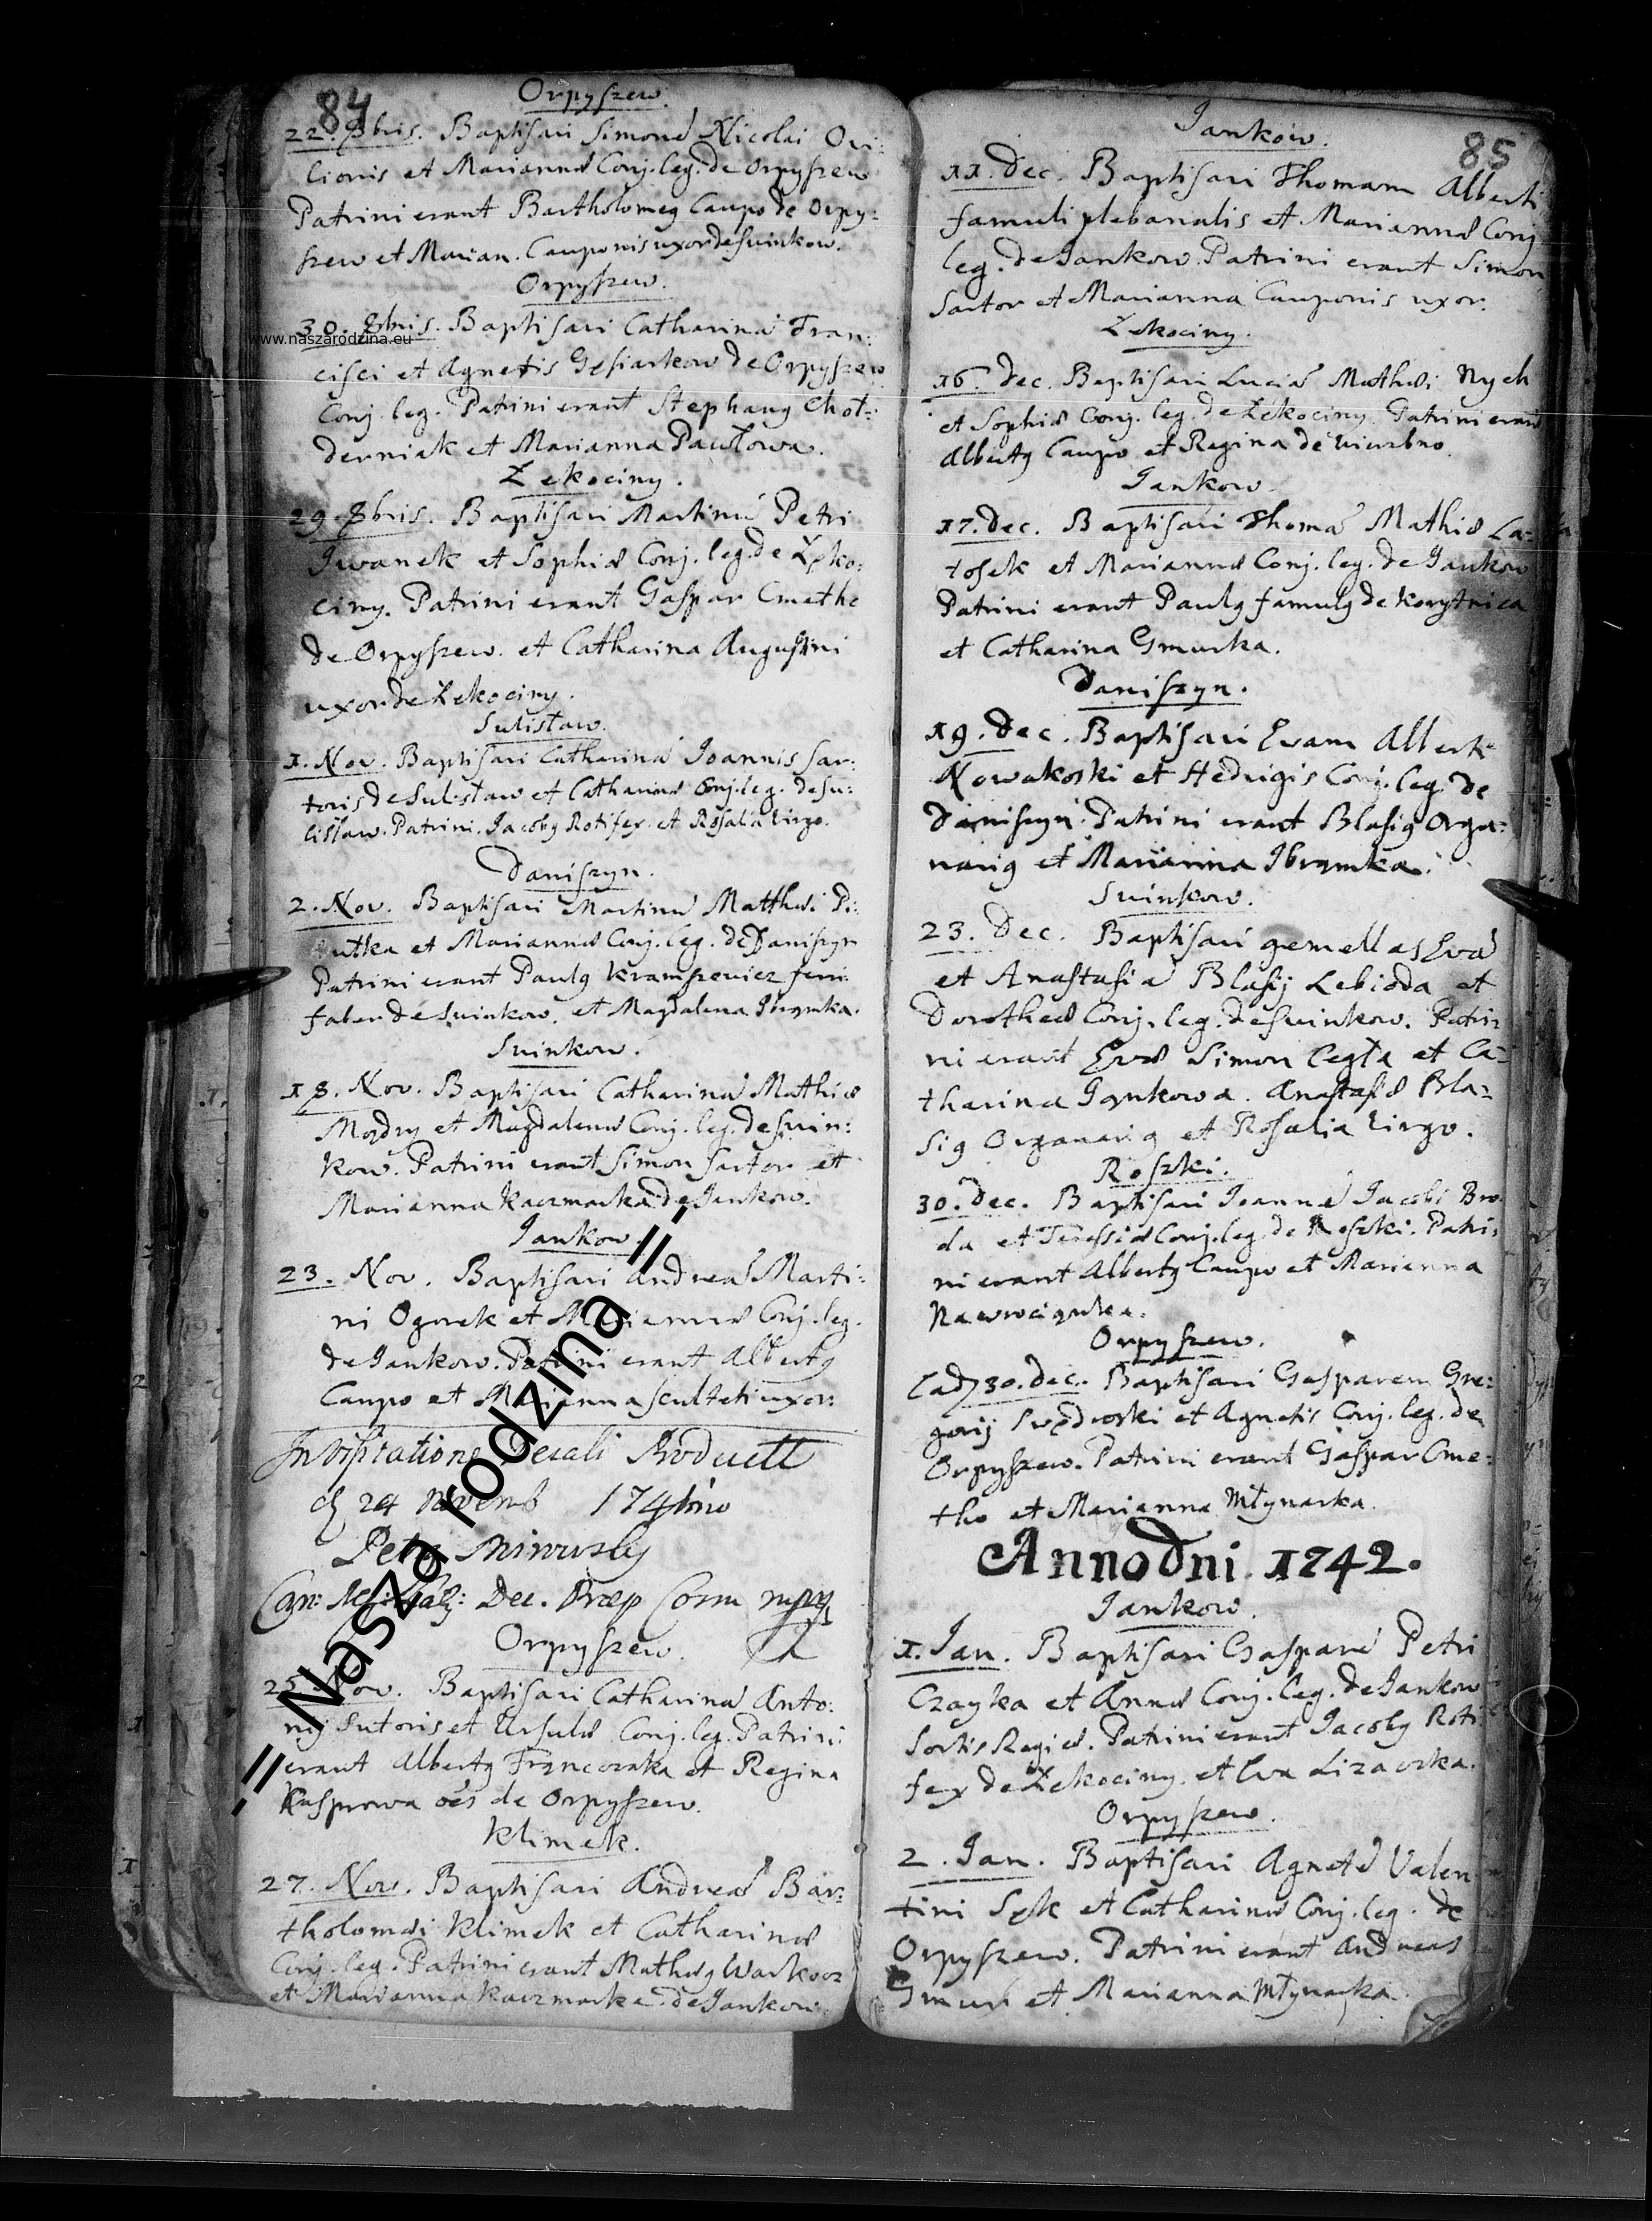 84
Orpyszew.
22. 8bris. Baptisavi Simonē Nicolai Ovi:
lionis et Mariannæ Conj. leg. de Orpyszew
Patrini erant Bartholomeg Caupo de Orpy:
szew et Marian. Cauponis uxor de Suinkow.
Orpyszew.
30. 8bris. Baptisavi Catharinā Fran:
www.naszarodzina.eu
cisci et Agnetis Gęsiarkow de Orpyszew
Conj. leg. Patrini erant Stephang Choł:
derniak et Marianna Pawłowa.
Łekociny.
29. 8bris. Baptisavi Martinū Petri
Iwanek et Sophiæ Conj. leg. de Łęko:
ciny. Patrini erant Gaspar Cmetho
de Orpyszew. et Catharina Augustini
uxor de Łekociny.
Sulisław.
1. Nov. Baptisavi Catharinā Joannis Sar:
toris de Sulisław et Catharinæ Conj. leg. de Su:
lisław. Patrini. Jacobg Rotifex. et Rosalia Virgo.
Daniszyn.
2. Nov. Baptisavi Martinū Matthæi
et Mariannæ Conj. leg. de Daniszyn
Patrini erant Paulg Kramszewicz ferri
faber de Suinkow. et Magdalena Ibrymka.
Suinkow.
18. Nov. Baptisavi Catharinā Mathiæ
Mądry et Magdalenæ Conj. leg. de Suin:
kow. Patrini erant Simon Sartor et
Marianna Kaczmarka de Jankow.
Jankow.
23. Nov. Baptisavi Andreā Marti:
ni Ogorek et Mariannæ Conj. leg.
de Jankow. Patrini erant Albertg
Caupo et Marianna sculteti uxor.
In Visitatione Decali
24 Novemb
Dec. Præp
Orpyszew.
25. Nov. Baptisavi Catharinā Anto:
nij Sutoris et Ursulæ Conj. leg. Patrini
erant Albertg et Regina
Kasprowa oēs de Orpyszew.
Klimek.
27. Nov. Baptisavi Andreā Bar:
tholomæi Klimek et Catharinæ
Conj. leg. Patrini erant Mathæg
et Marianna Kaczmarka de Jankow.
-= Nasza rodzina =-
85
Jankow.
11. Dec. Baptisavi Thomam Alberti
famuli plebanalis et Mariannæ Conj
leg. de Jankow. Patrini erant Simon
Sartor et Marianna Cauponis uxor.
Łekociny.
16. Dec. Baptisavi Luciā Mathæi Nych
et Sophiæ Conj. leg. de Łekociny. Patrini erant
Albertg Caupo et Regina de Wierzbno.
Jankow.
17. Dec. Baptisavi Thomā Mathiæ La:
tosek et Mariannæ Conj. leg. de Jankow
Patrini erant Paulg famulg de Korytnica
et Catharina Gmurka.
Daniszyn.
19. Dec. Baptisavi Evam Alberti
Nowakoski et Hedvigis Conj. leg. de
Daniszyn. Patrini erant Blasig Orga:
narig et Marianna Ibrymka.
Suinkow.
23. Dec. Baptisavi gemellas Evā
et Anastasiā Blasij Lebioda et
Dorotheæ Conj. leg. de Suinkow. Patri:
ni erant Evæ Simon Cegła et Ca:
tharina Jankowa. Anastasiæ Bla:
sig Organarig et Rosalia Virgo.
Roszki.
30. Dec. Baptisavi Joannē Jacobi Bro
da et Teressiæ Conj. leg. de Roszki. Patri:
ni erant Albertg Caupo et Marianna
Nawrociąnka.
Orpyszew.
[ad] 30. Dec. Baptisavi Gasparem Gre:
gorij Swędroski et Agnetis Conj. leg. de
Orpyszew. Patrini erant Gaspar Cme:
tho et Marianna Młynarka.
Anno Dni 1742.
Jankow.
1. Jan. Baptisavi Gasparē Petri
Czayka et Annæ Conj. leg. de Jankow
Sortis Regiæ. Patrini erant Jacobg Roti
fex de Łekociny. et Eva Lizaczka.
Orpyszew.
2. Jan. Baptisavi Agnetē Valen
tini Sęk et Catharinæ Conj. leg. de
Orpyszew. Patrini erant Andreas
Gmur et Marianna Młynarka.